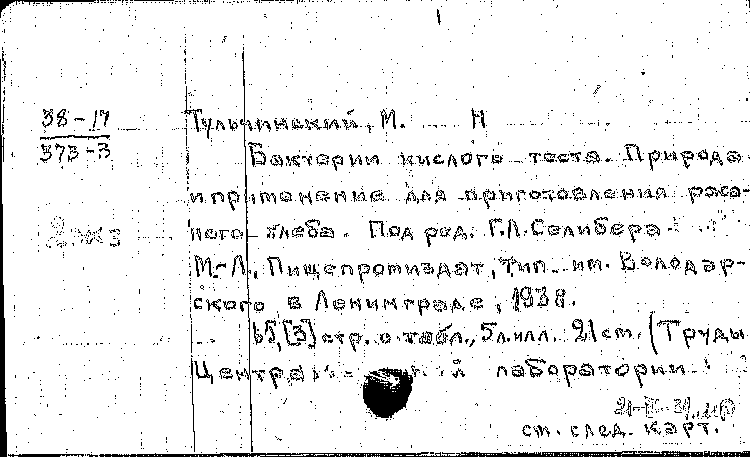 38-17
373-3
Тульчинский, М. Н
Бактерии кислого теста. Природа
и применение для приготовления ржа-
ного хлеба. Под ред. Г.Л. Селибера.
М.-Л., Пищепромиздат, тип. им. Володар-
ского в Ленинграде, 1938.
65, [3] стр. с табл., 5 л. илл. 21 см. (Труды
лаборатории
см. след. карт.